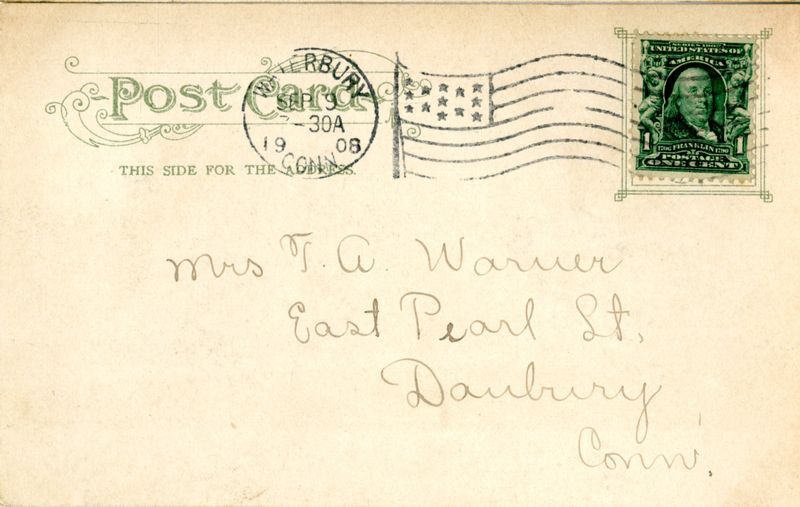 Post Card
THIS SIDE FOR THE ADDRESS.
WATERBURY
SEP 9
-30A
19 08
CONN.
SERIES 1902
UNITED STATES OF
AMERICA
1706 FRANKLIN 1790
POSTAGE
1 ONE CENT 1
Mrs T. A. Warner
East Pearl St.
Danbury
Conn.